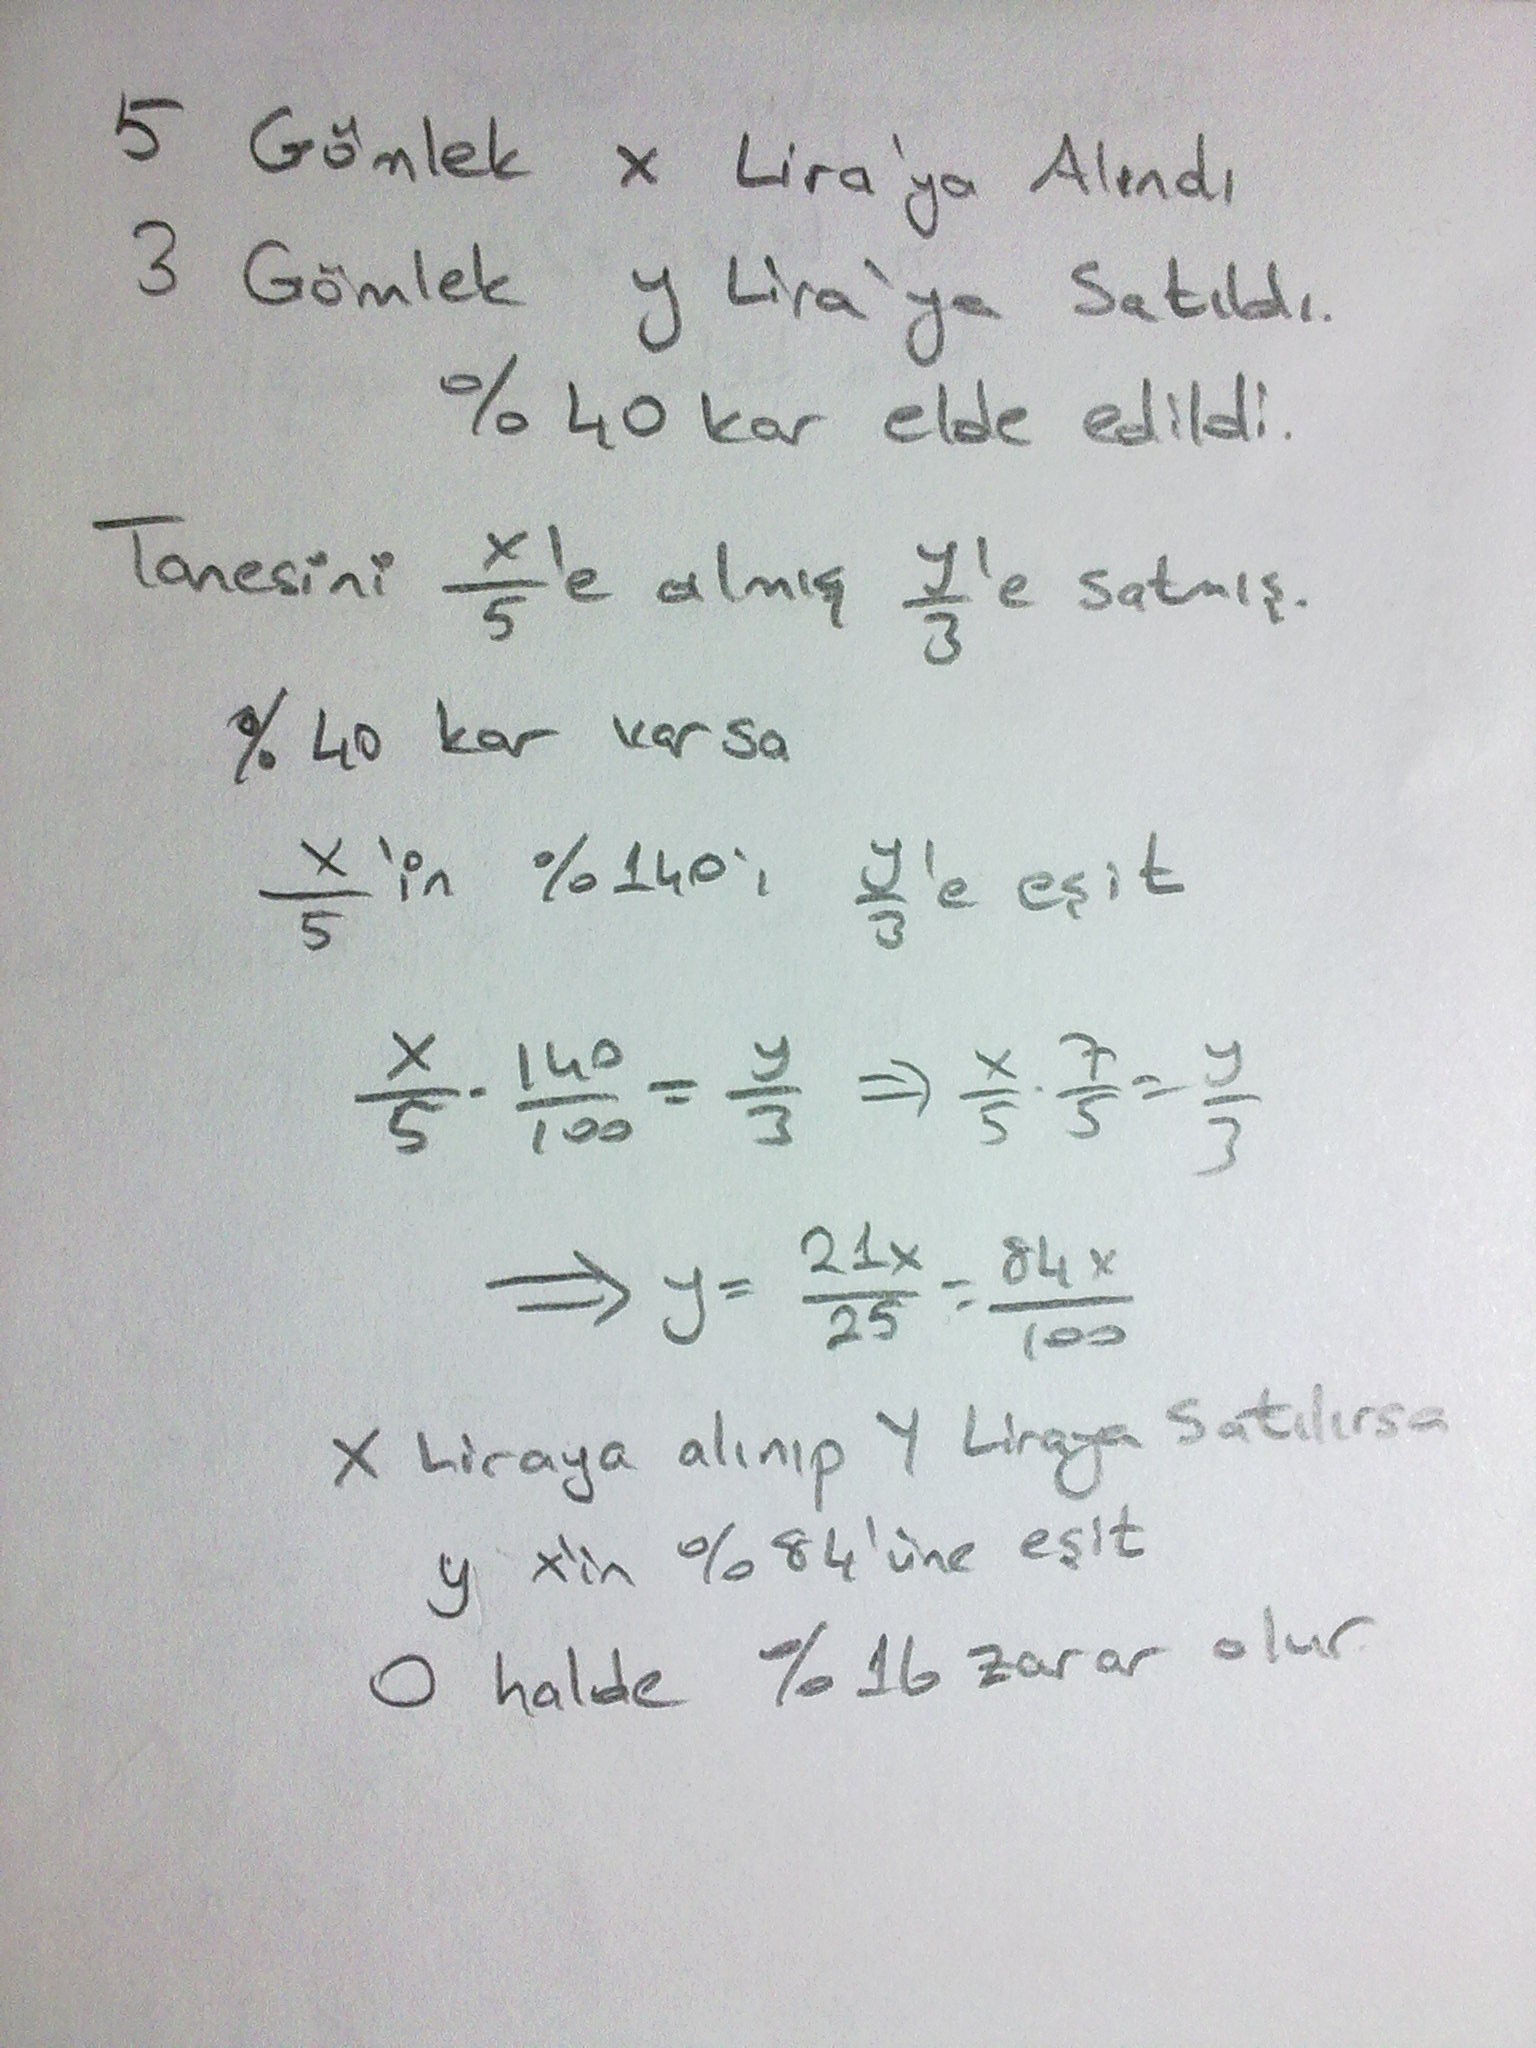 5 Gömlek x Lira'ya Alındı
3 Gömlek y Lira'ya Satıldı.
%40 kar elde edildi.
Tanesini x/5'e almış y/3'e satmış.
%40 kar varsa
x/5'in %140'ı y/3'e eşit
x/5 · 140/100 = y/3 ⇒ x/5 · 7/5 = y/3
⇒ y = 21x/25 = 84x/100
X Liraya alınıp Y Liraya Satılırsa
y x'in %84'üne eşit
O halde %16 zarar olur